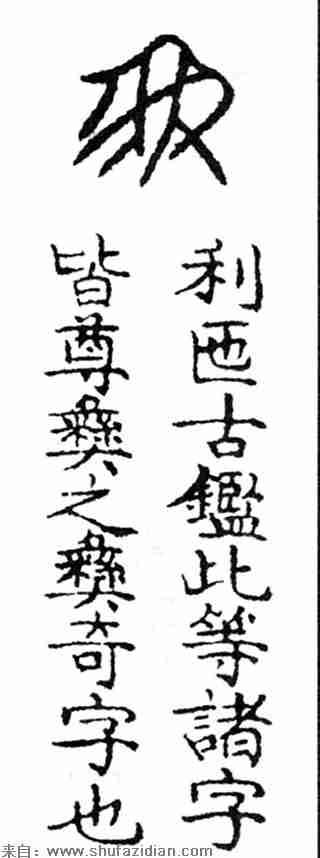 利匜古鑑此等諸字
皆尊彝之彝奇字也
来自：www.shufazidian.com